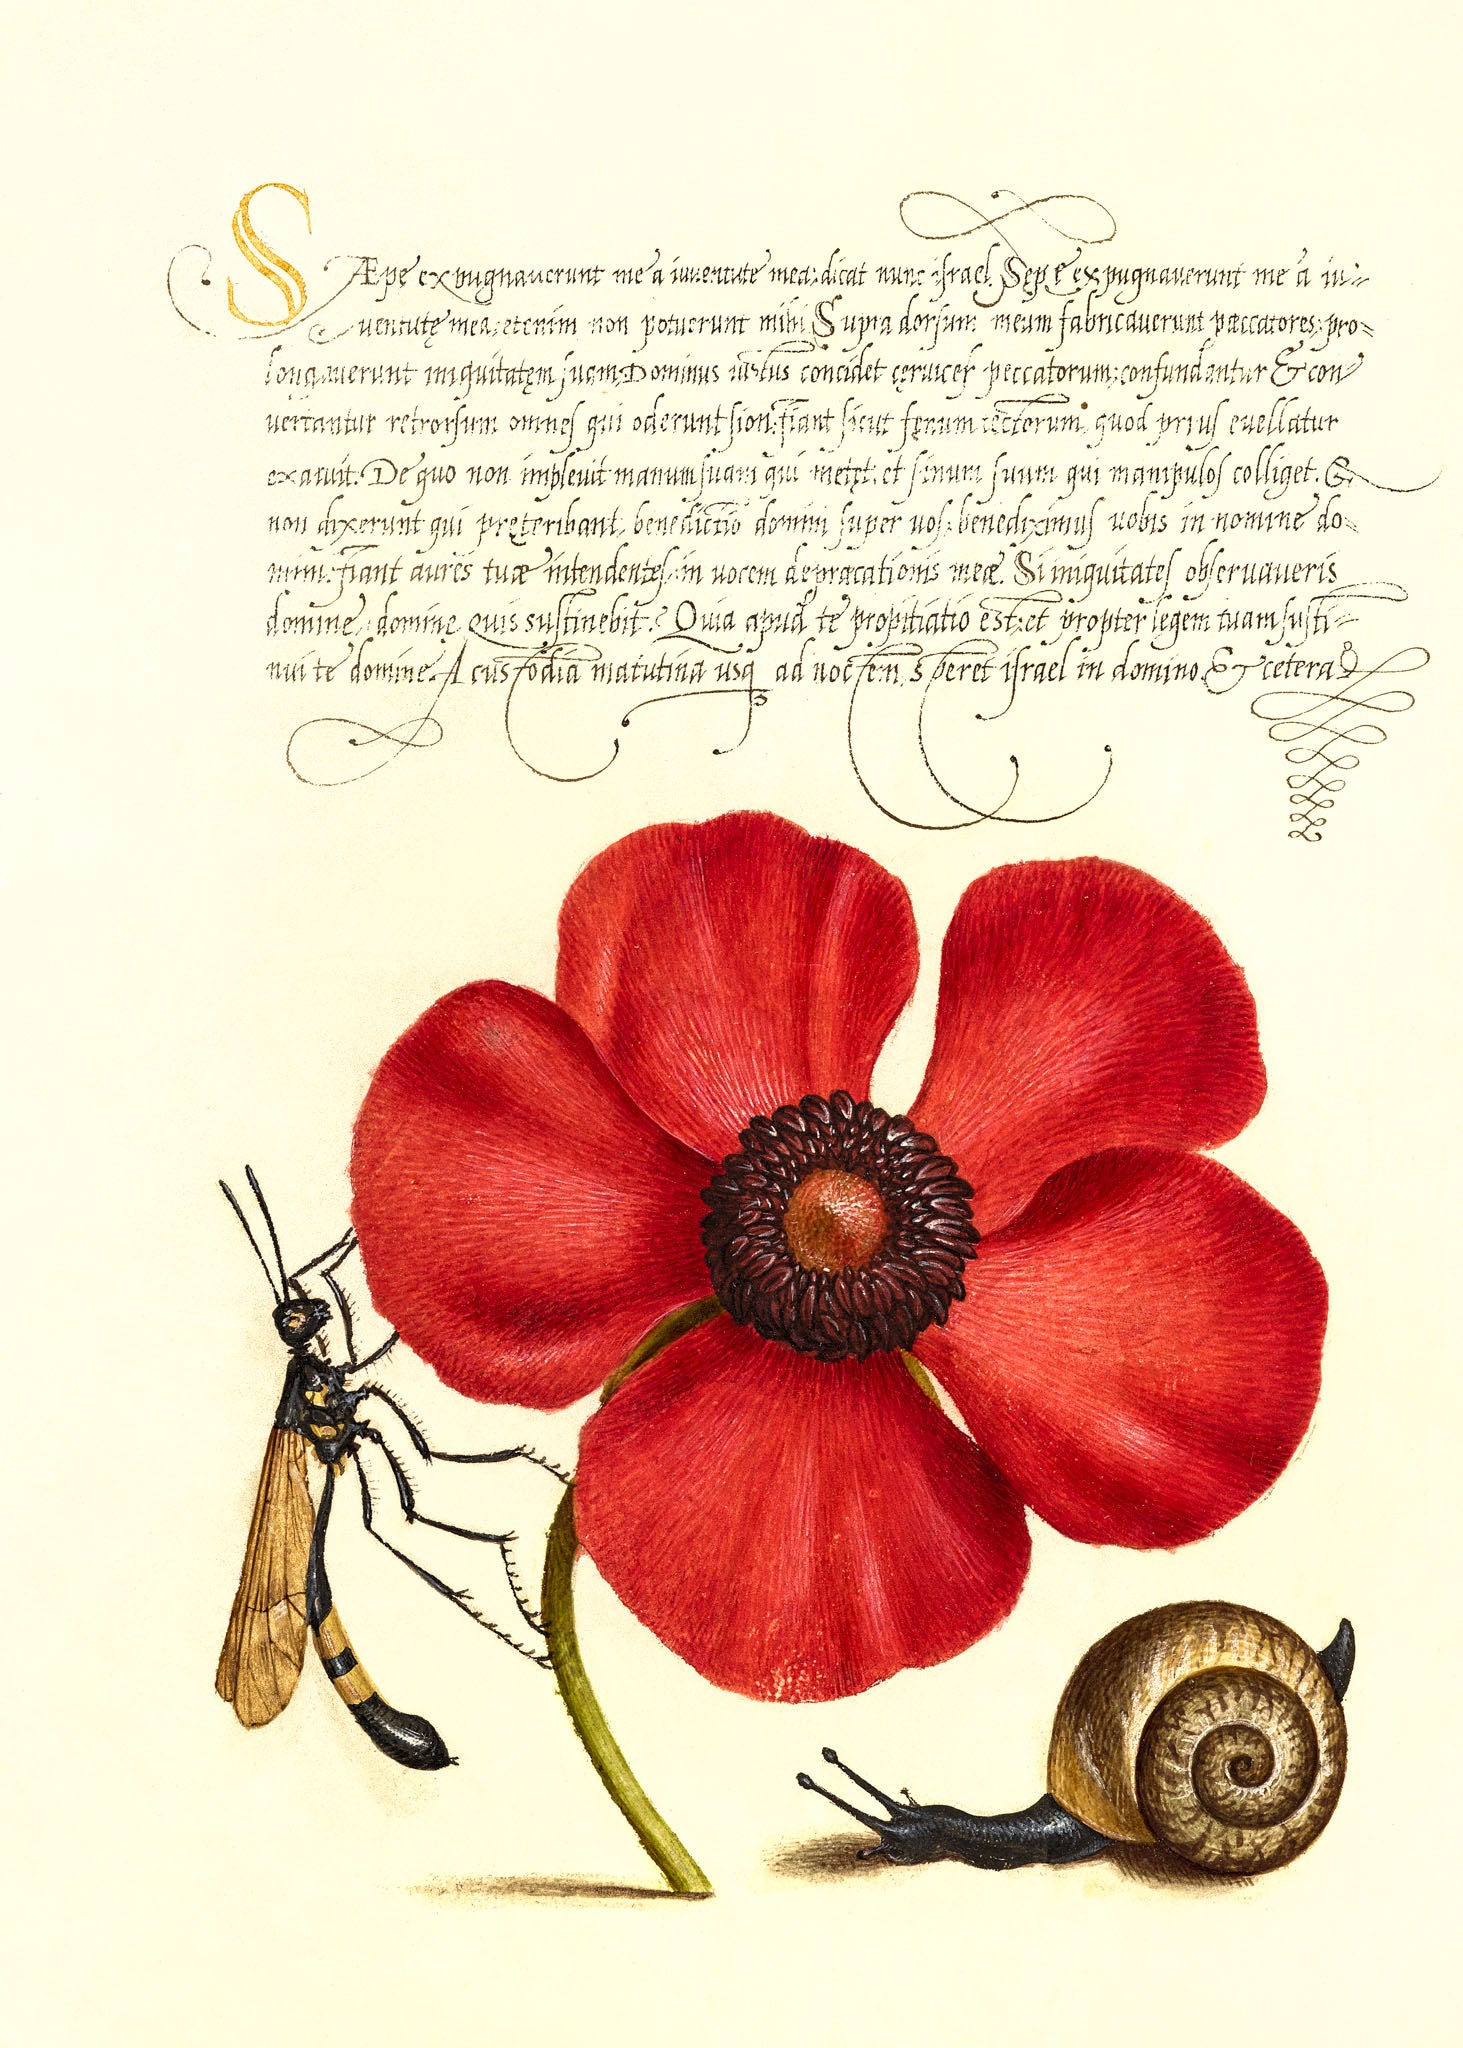 SÆpe expugnauerunt me a iuuentute mea: dicat nunc israel. Sępe expugnauerunt me a iu=
uentutę mea: etenim non potuerunt mihi Supra dorsum meum fabricauerunt pæccatores: pro=
longauerunt iniquitatęm suam. Dominus iustus concidet cęruices peccatorum: confundantur & con
uertantur retrorsum omnes qui oderunt sion: fiant sicut fęnum tectorum, quod prius euellatur
exaruit. De quo non impleuit manum suam qui metęt: et sinum suum qui manipulos colliget. &
non dixerunt qui pręteribant, benedictio domini super uos: benediximus uobis in nomine do=
mini: fiant aures tuæ intendentes, in uocem depræcationis meæ. Si iniquitates obseruaueris
domine, domine quis sustinebit. Quia apud te propitiatio est: et propter legem tuam susti=
nui te domine. A custodia matutina usq ad noctem, speret israel in domino. & cetera